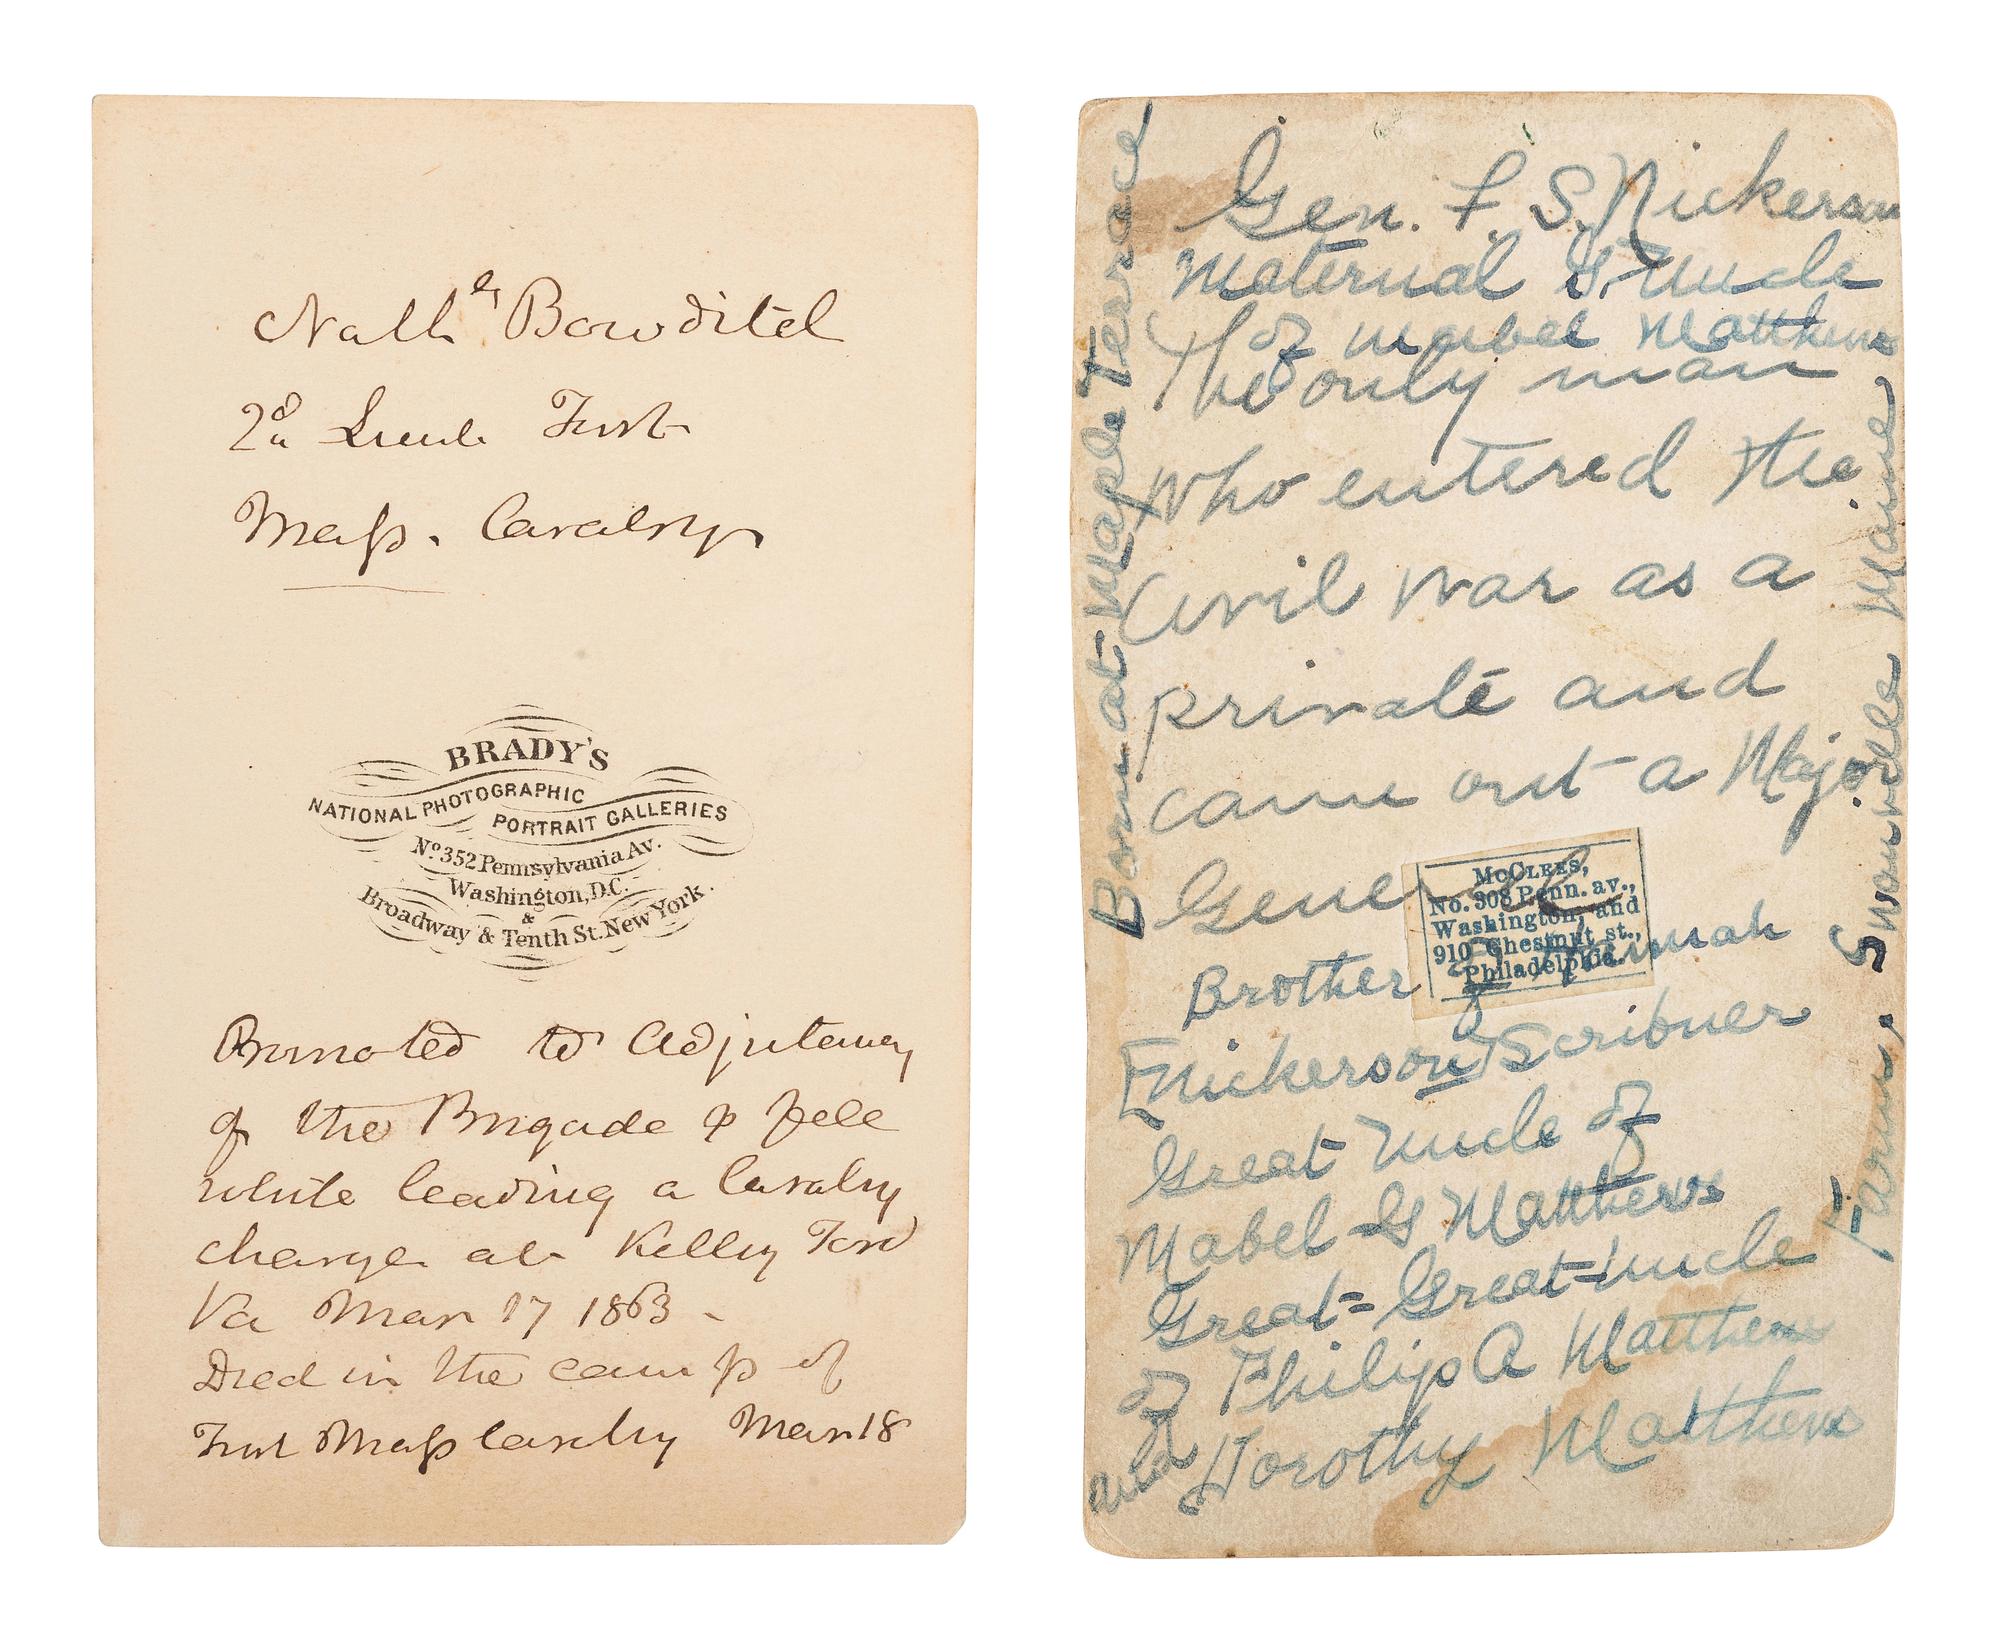 Nathl Bowditch
2d Lieut First
Mass. Cavalry
BRADY'S
NATIONAL PHOTOGRAPHIC
PORTRAIT GALLERIES
No. 352 Pennsylvania Av.
Washington, D.C.
&
Broadway & Tenth St. New York.
Promoted to Adjutancy
of the Brigade & fell
while leading a Cavalry
charge at Kelley Ford
Va Mar 17 1863 -
Died in the camp of
First Mass Cavalry Mar 18
Gen. F. S. Nickerson
Maternal G. Uncle
of Mabel Matthews
The only man
who entered the
Civil War as a
private and
came out a Major
General
McCLEES,
No. 308 Penn. av.,
Washington, and
910 Chestnut st.,
Philadelphia.
Brother of
Nickerson Scribner
Great Uncle of
Mabel G Matthews
Great-Great-Uncle
of Philip A Matthews
and Dorothy Matthews
Born at Maple Terrace
Farm, Swanville Maine